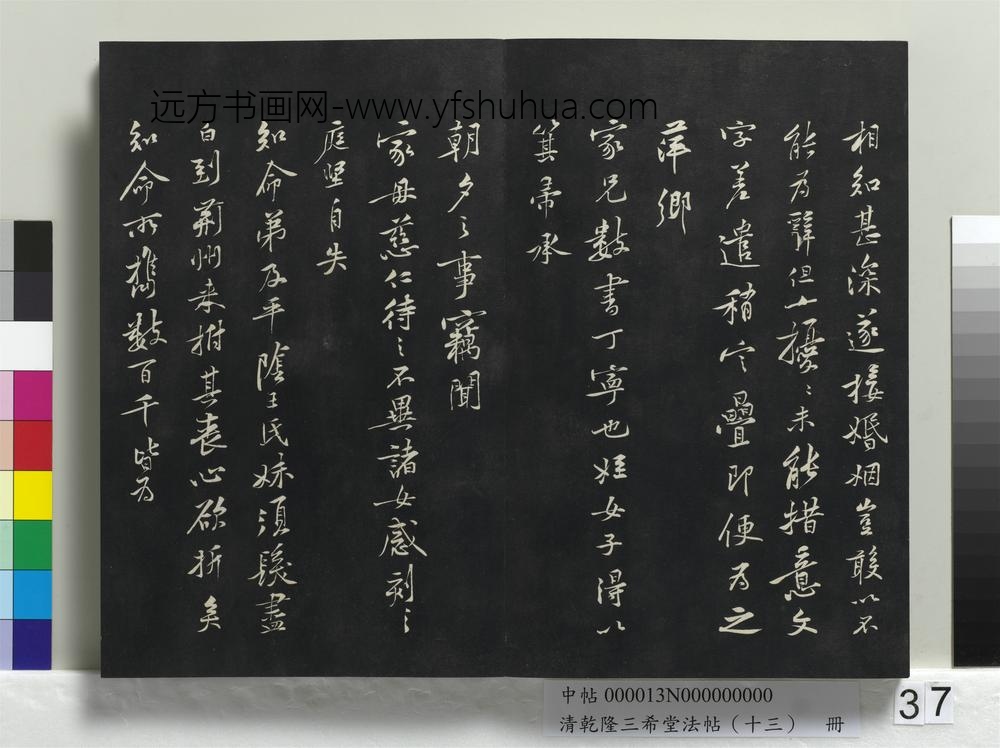 远方书画网-www.yfshuhua.com
相知甚深遂接婚姻豈敢以不
能為辭但擾〻未能措意文
字差遣稍定疊即便為之
萍鄉
家兄數書丁寧也姪女子得以
箕帚承
朝夕之事竊聞
家母慈仁待之不異諸女感刻〻
庭堅自失
知命弟及平陰王氏妹須髮盡
白到荊州来拊其喪心欲折矣
知命所攜數百千皆為
中帖 000013N000000000
清乾隆三希堂法帖（十三） 冊
37